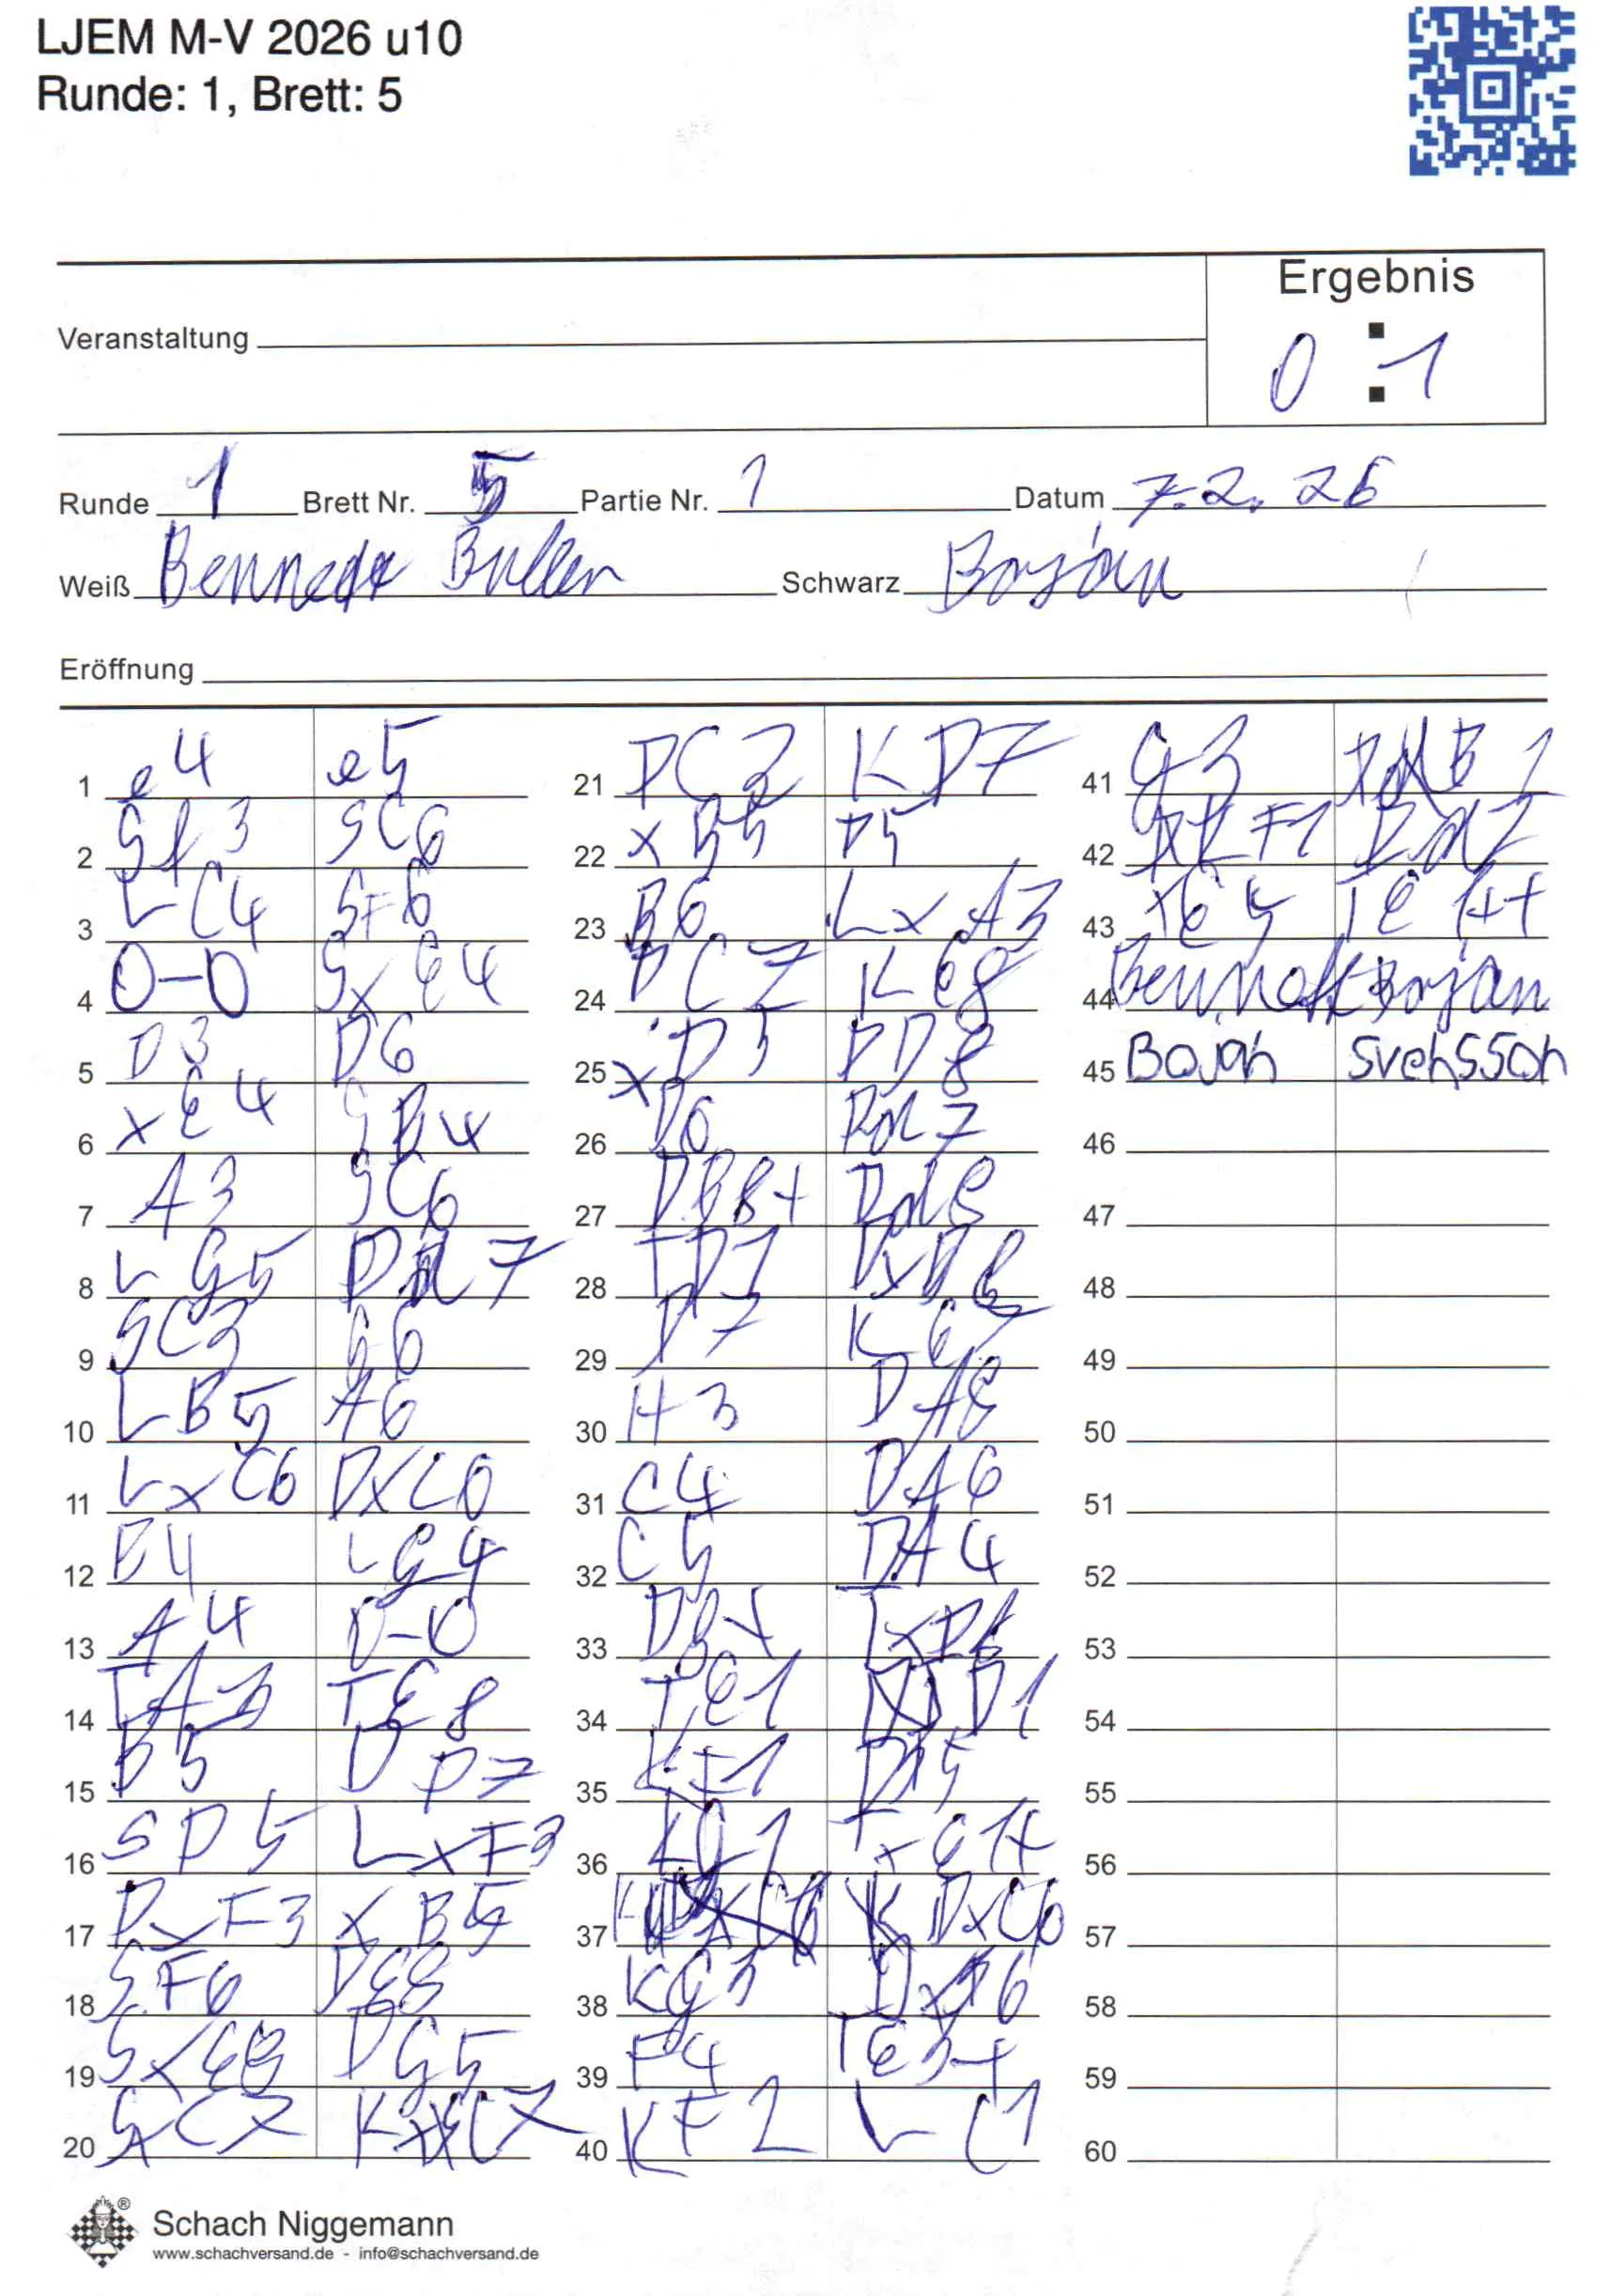 LJEM M-V 2026 u10
Runde: 1, Brett: 5
Ergebnis
Veranstaltung
0 : 1
Runde 1 Brett Nr. 5 Partie Nr. 1 Datum 7.2.26
Weiß Schwarz Bojan
Eröffnung
1 e4 e5
2 Sf3 SC6
3 LC4 SF6
4 0-0 SxE4
5 D3 D6
6 xE4 SB4
7 A3 SC6
8 LG5 7
9 SC3 G6
10 LB5 A6
11 LxC6 DxC6
12 B4 LG4
13 A4 0-0
14 TA3 TE8
15 B5 DD7
16 SD5 LxF3
17 DxF3 xB5
18 SF6 DE8
19 SxE8 DG5
20 SxC7
21 DC3 KD7
22 xB5 D5
23 B6 LxA3
24 DC7 KE8
25 xD5 DD8
26 D6 Dd7
27 DB8+ Dd8
28 TD1 DxB6
29 D7 KE7
30 H3 DA8
31 C4 DA6
32 C5 DA4
33
34 TE1 D1
35 KF1
36 KG1 TxE1+
37 DxC6
38 KG3
39 F4 TE3+
40 KF2 LC1
41 G3 B1
42 KF1
43 xE5 TE1++
44 Bennett Bojan
45 Bojan Svensson
46
47
48
49
50
51
52
53
54
55
56
57
58
59
60
Schach Niggemann
www.schachversand.de - info@schachversand.de